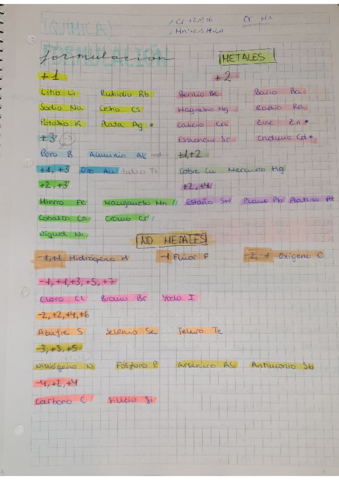 formulación
METALES
+1
+2
Litio Li Rubidio Rb Berilio Be Bario Ba
Sodio Na Cesio Cs Magnesio Mg Radio Ra
Potasio K Plata Ag * Calcio Ca Zinc Zn *
+3 Estroncio Sr Cadmio Cd *
Boro B Aluminio Al +1+2
+1, +3 Oro Au Cobre Cu Mercurio Hg
+2, +3 +2, +4
Hierro Fe Manganeso Mn Estaño Plomo Pb Platino Pt
Cobalto Co Cromo Cr
Niquel Ni
NO METALES
-1, +1 Hidrógeno H -1 Flúor F -2, -1 Oxígeno O
-1, +1, +3, +5, +7
Cloro Cl Bromo Br Yodo I
-2, +2, +4, +6
Azufre S Selenio Se Teluro Te
-3, +3, +5
Nitrógeno N Fósforo P Arsénico As Antimonio Sb
-4, +2, +4
Carbono C Silicio Si